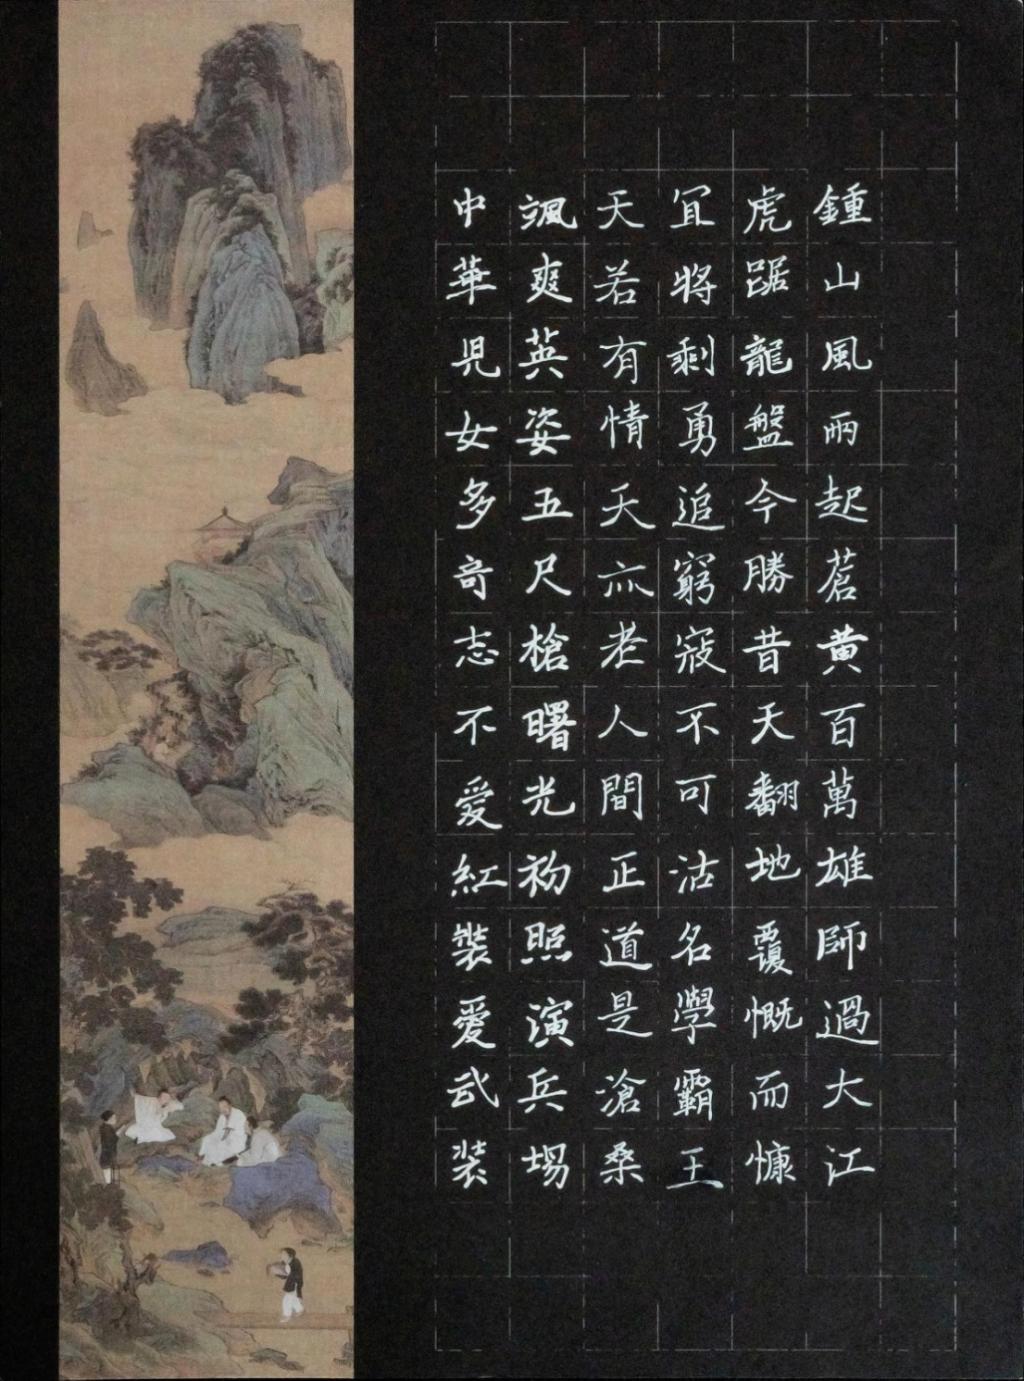 鍾山風雨起蒼黃百萬雄師過大江
虎踞龍盤今勝昔天翻地覆慨而慷
宜將剩勇追窮寇不可沽名學霸王
天若有情天亦老人間正道是滄桑
颯爽英姿五尺槍曙光初照演兵場
中華兒女多奇志不愛紅裝愛武裝